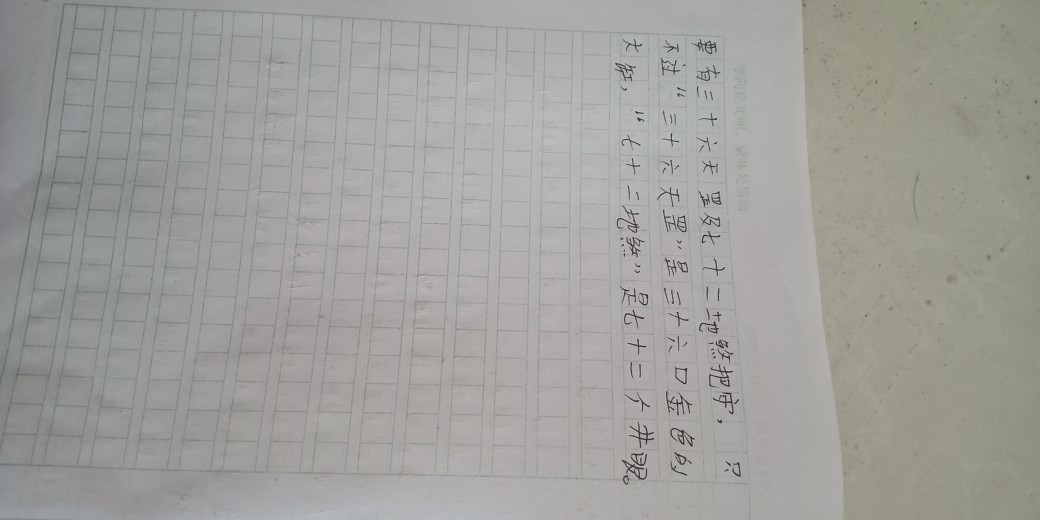 要有三十六天罡及七十二地煞把守，只
不过“三十六天罡”是三十六口金色的
大缸，“七十二地煞”是七十二个井眼。